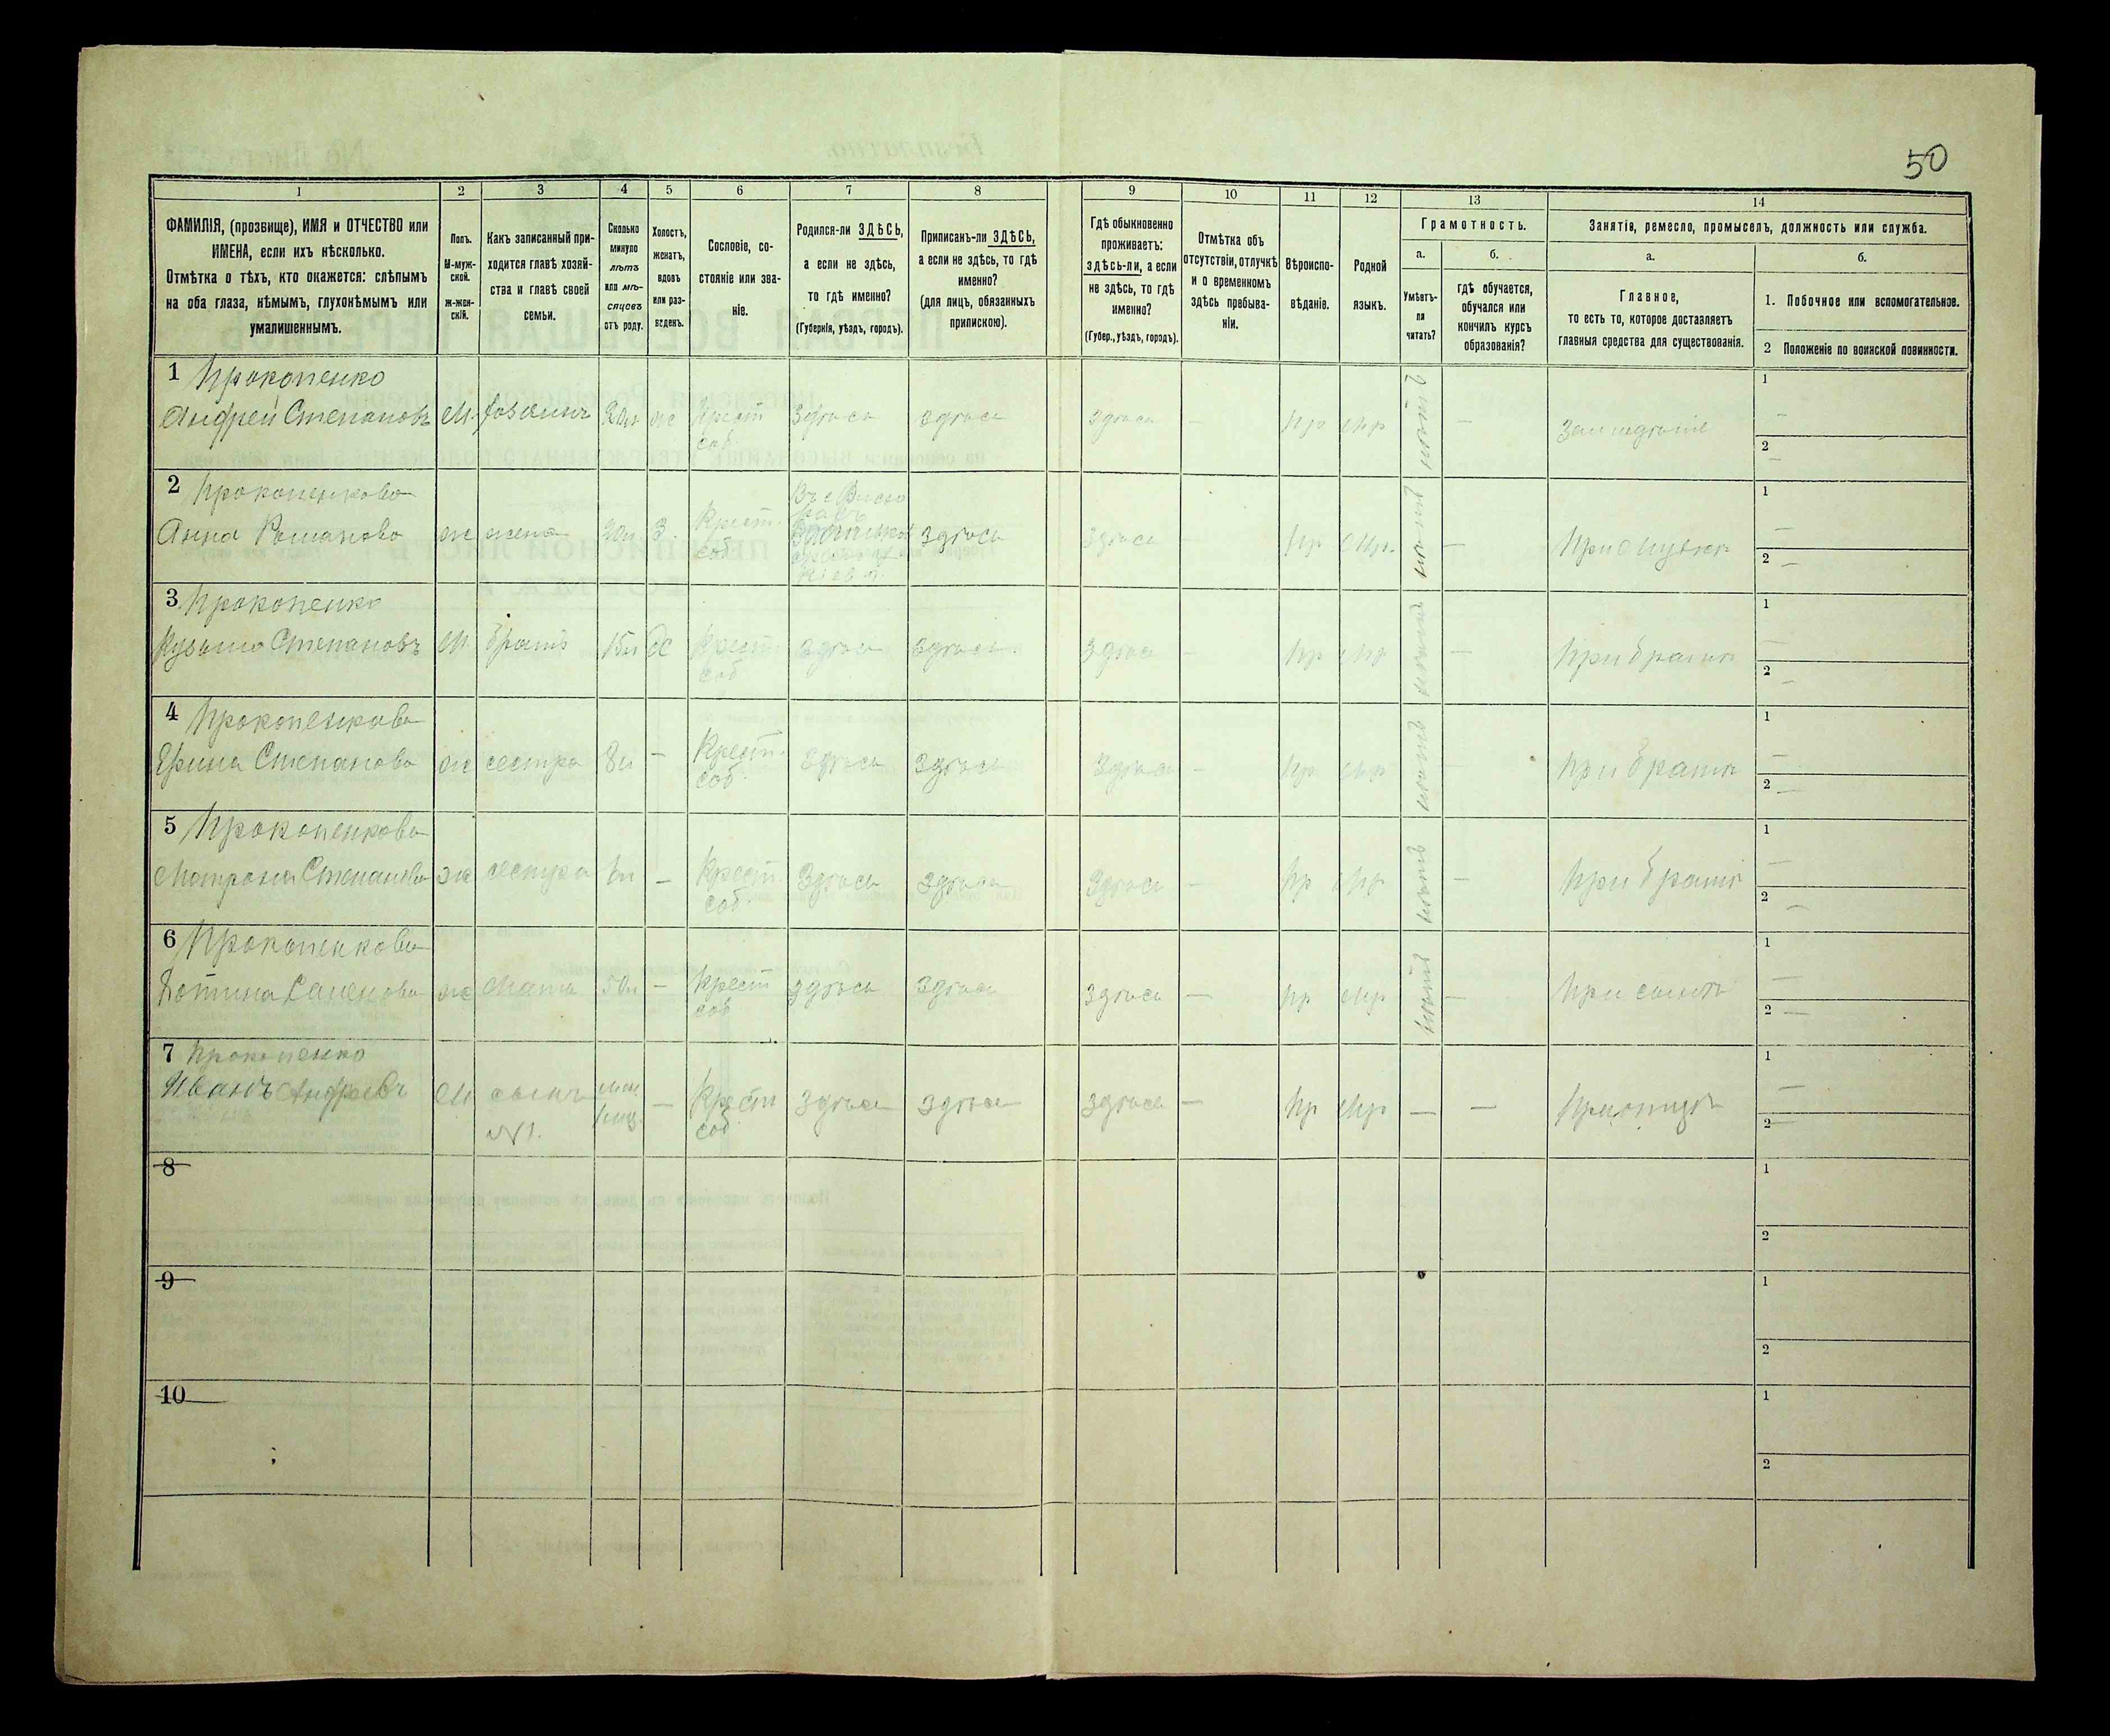 50
1
2
3
4
5
6
7
8
9
10
11
12
13
14
ФАМИЛІЯ, (прозвище), ИМЯ и ОТЧЕСТВО или
ИМЕНА, если ихъ нѣсколько.
Отмѣтка о тѣхъ, кто окажется: слѣпымъ
на оба глаза, нѣмымъ, глухонѣмымъ или
умалишеннымъ.
Полъ.
М-муж-
ской.
ж-жен-
скій.
Какъ записанный при-
ходится главѣ хозяй-
ства и главѣ своей
семьи.
Сколько
минуло
лѣтъ
или мѣ-
сяцевъ
отъ роду.
Холостъ,
женатъ,
вдовъ
или раз-
веденъ.
Сословіе, со-
стояніе или зва-
ніе.
Родился-ли ЗДѢСЬ,
а если не здѣсь,
то гдѣ именно?
(Губернія, уѣздъ, городъ).
Приписанъ-ли ЗДѢСЬ,
а если не здѣсь, то гдѣ
именно?
(для лицъ, обязанныхъ
припискою).
Гдѣ обыкновенно
проживаетъ:
здѣсь-ли, а если
не здѣсь, то гдѣ
именно?
(Губер., уѣздъ, городъ).
Отмѣтка объ
отсутствіи, отлучкѣ
и о временномъ
здѣсь пребыва-
ніи.
Вѣроиспо-
вѣданіе.
Родной
языкъ.
Грамотность.
а.
Умѣетъ-
ли
читать?
б.
гдѣ обучается,
обучался или
кончилъ курсъ
образованія?
Занятіе, ремесло, промыселъ, должность или служба.
а.
Главное,
то есть то, которое доставляетъ
главныя средства для существованія.
б.
1. Побочное или вспомогательное.
2 Положеніе по воинской повинности.
1 Прокопенко
Андрей Степановъ М. хозяинъ ж Крест соб. Здѣсь здѣсь здѣсь — пр мр нѣтъ — Земледѣліе
1 —
2 —
2 Прокопенкова
Анна Романова ж жена 20л З. Крест. соб. здѣсь здѣсь — пр мр. нѣтъ — При мужѣ
1 —
2 —
3 Прокопенко
Кузьма Степановъ М. братъ 15л Х Крест соб здѣсь здѣсь здѣсь — пр мр нѣтъ — При братѣ
1 —
2 —
4 Прокопенкова
Степанова ж сестра 8л — Крест. соб. здѣсь здѣсь здѣсь — пр мр нѣтъ — При братѣ
1 —
2 —
5 Прокопенкова
Матрона Степанова ж сестра — Крест. соб. Здѣсь здѣсь здѣсь — пр мр нѣтъ — При братѣ
1 —
2 —
6 Прокопенкова
ж Мать 50л — Крест соб здѣсь здѣсь здѣсь — пр мр нѣтъ — При сынѣ
1 —
2 —
7 Прокопенко
Иванъ Андреевъ М сынъ №1. — Крест соб здѣсь здѣсь здѣсь — пр мр — — При отцѣ
1 —
2 —
8
1
2
9
1
2
10
1
2